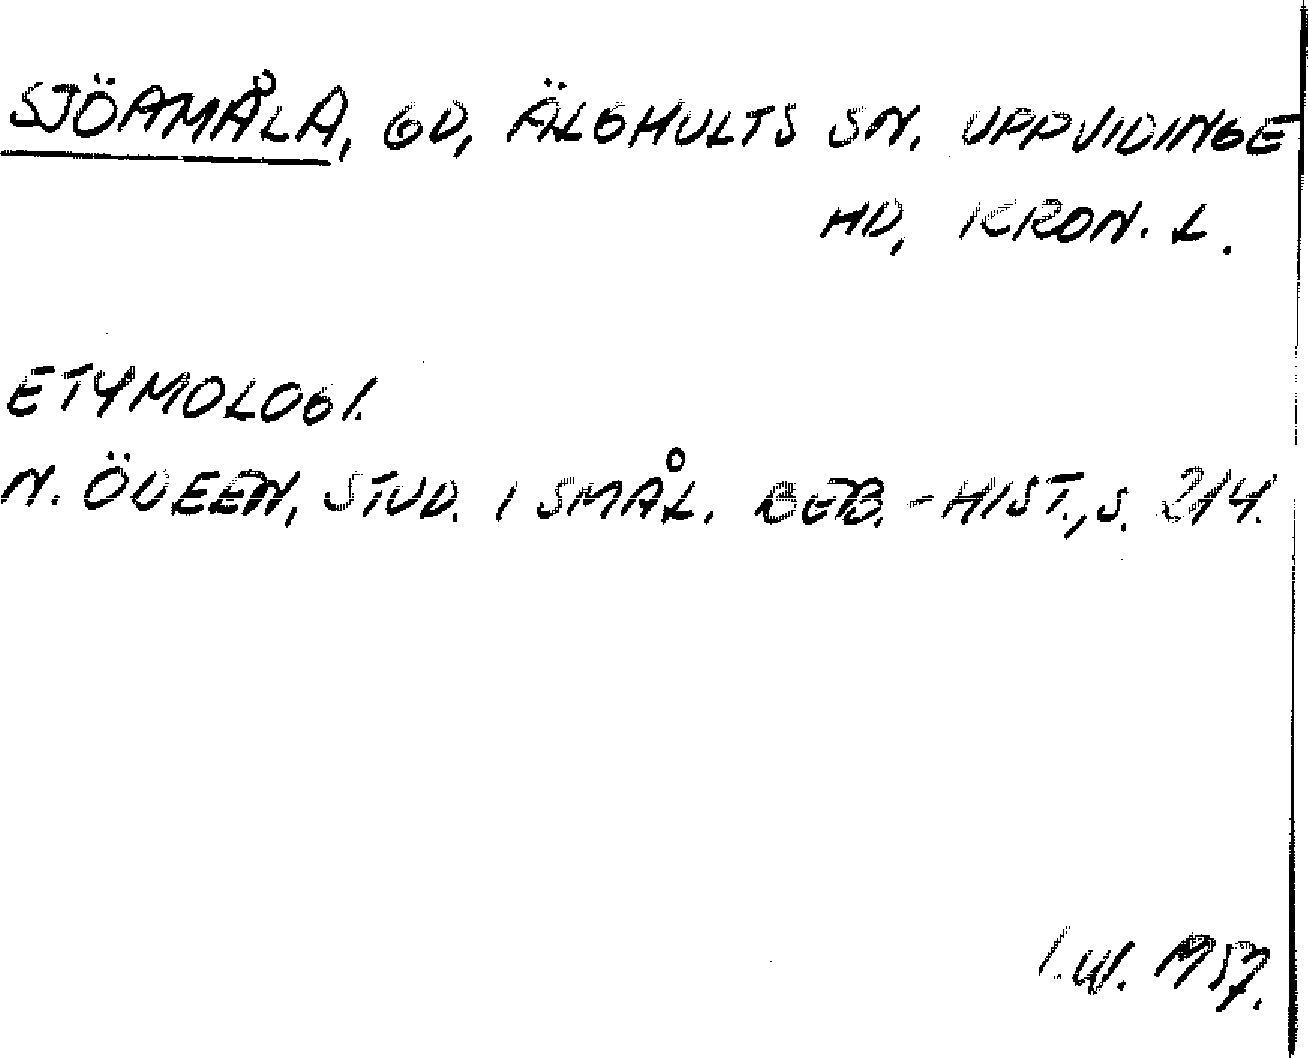 SJÖAMÅLA, GD, ÄLGHULTS SN. UPPVIDINGE
HD, KRON. L.
ETYMOLOGI.
N. ÖDEEN, STUD. I SMÅL. BEB.-HIST., S. 214.
1957.